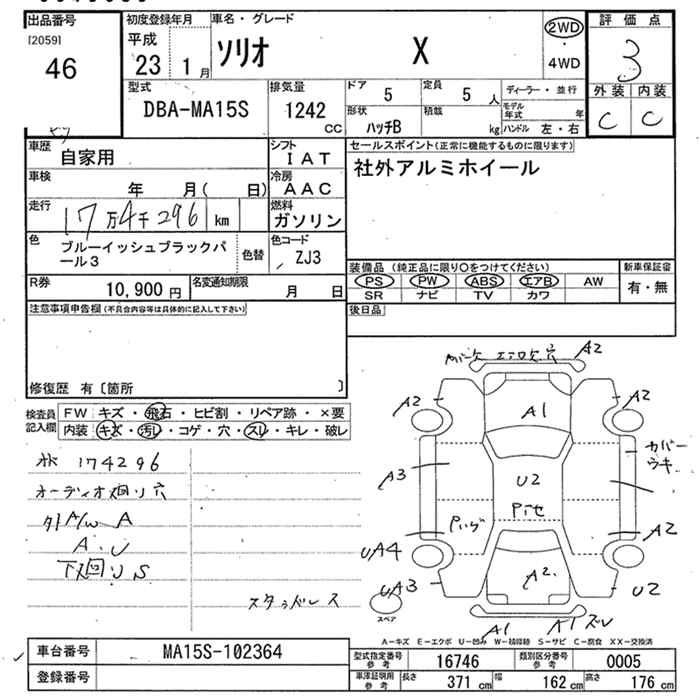 出品番号
[2059]
46
初度登録年月
平成
23 1月
車名・グレード
ソリオ X
2WD
・
4WD
評価点
3
外装 内装
C C
型式
DBA-MA15S
排気量
1242
CC
ドア
5
定員
5 人
形状
ハッチB
積載
kg
ディーラー・並行
モデル年式 年
ハンドル 左・右
車歴
自家用
シフト
IAT
車検
年 月( 日)
冷房
AAC
走行
17万4千296 km
燃料
ガソリン
色
ブルーイッシュブラックパール3
色替
色コード
ZJ3
R券
10,900円
名変通知期限
月 日
セールスポイント(正常に機能するものに限ります)
社外アルミホイール
装備品(純正品に限り○をつけてください)
PS PW ABS エアB AW
SR ナビ TV カワ
新車保証書
有・無
後日品
注意事項申告欄(不具合内容等は具体的に記入して下さい)
修復歴 有〔箇所 〕
検査員記入欄
FW キズ・飛石・ヒビ割・リペア跡・×要
内装 キズ・汚レ・コゲ・穴・スレ・キレ・破レ
174296
オーディオ廻り穴
外A/W A
A.U
下廻り S
スタッドレス
エアロ欠 穴
A2
A2
A2
A1
カバーウキ
A3
U2
Pセ
A2
UA4
UA3
A2
U2
スペア
A1
A1ズレ
A-キズ E-エクボ U-凹み W-補修跡 S-サビ C-腐食 XX-交換済
車台番号
MA15S-102364
登録番号
型式指定番号
参考
16746
類別区分番号
参考
0005
車庫証明用
参考
長さ 371 cm 幅 162 cm 高さ 176 cm